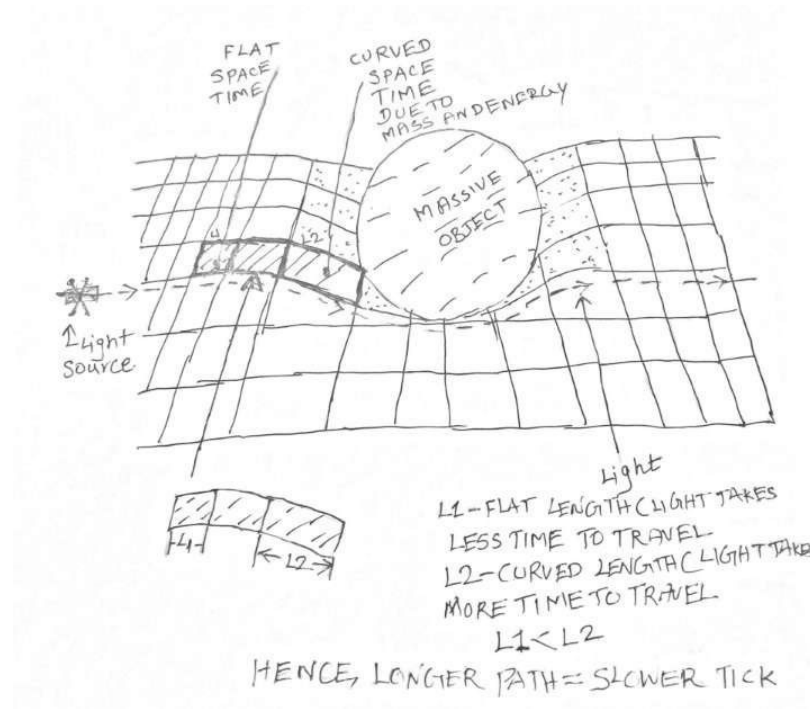 FLAT
SPACE
TIME
CURVED
SPACE
TIME
DUE TO
MASS AND ENERGY
MASSIVE
OBJECT
L1
L2
Light
Source
Light
L1
L2
L1-FLAT LENGTH(LIGHT TAKES
LESS TIME TO TRAVEL
L2-CURVED LENGTH(LIGHT TAKE
MORE TIME TO TRAVEL
L1<L2
HENCE, LONGER PATH = SLOWER TICK